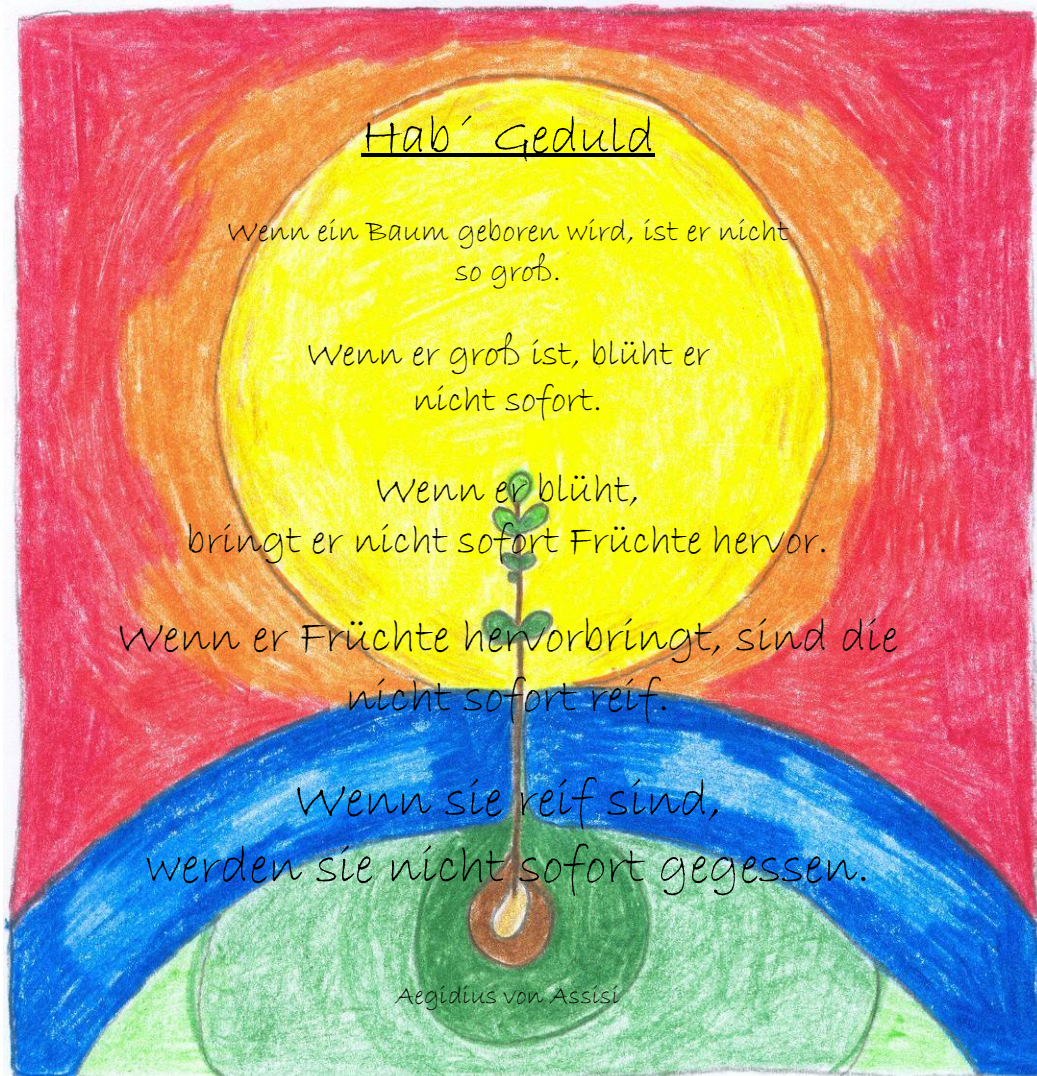 Hab´ Geduld
Wenn ein Baum geboren wird, ist er nicht
so groß.
Wenn er groß ist, blüht er
nicht sofort.
Wenn er blüht,
bringt er nicht sofort Früchte hervor.
Wenn er Früchte hervorbringt, sind die
nicht sofort reif.
Wenn sie reif sind,
werden sie nicht sofort gegessen.
Aegidius von Assisi